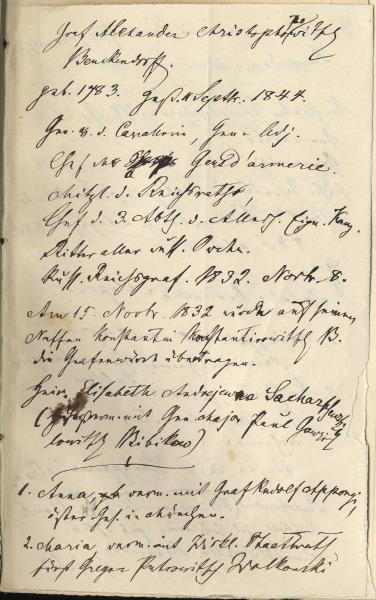 Graf Alexander Christophorowitsch
Benckendorff.
geb. 1783. Gest. 11 Septbr. 1844.
Gen. v. d. Cavallerie, Gen.-Adj.
Chef der Gensd'armerie.
Mitgl. d. Reichsraths,
Chef d. 3. Abth. d. Allerh. Eign. Kanz.
Ritter aller russ. Orden.
Russ. Reichsgraf. 1832. Novbr. 8.
Am 15. Novbr. 1832 wurde auf seinen
Neffen Konstantin Konstantinowitsch B.
die Grafenwürde übertragen.
Heir. Elisabeth Andrejewna Sacharschewsky
(verm. mit Gen. Major Paul Gawri-
lowitsch Bibikow)
1. Anna, verm. mit Graf Rudolf Apponyi,
öster. Ges. in München.
2. Maria, verm. mit Wirkl. Staatsrath
Fürst Gregor Petrowitsch Wolkonski